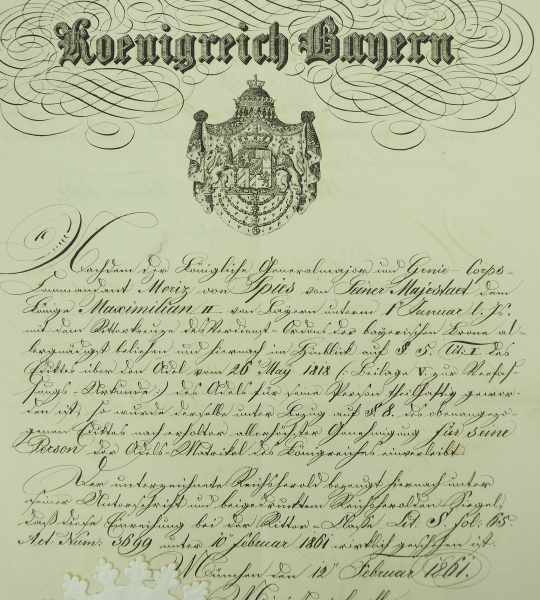 Koenigreich Bayern
Nachdem der Königliche Generalmajor und Genie-Corps-
Commandant Moriz von Spies von Seiner Majestaet dem
Könige Maximilian II von Bayern unterm 1ten Januar l. Js.
mit dem Ritterkreuze des Verdienst-Ordens der bayerischen Krone al-
lergnädigst beliehen und hiernach im Hinblick auf § 5. Tit. I des
Ediktes über den Adel vom 26ten May 1818 (: Beilage V. zur Verfas-
sungs-Urkunde :) des Adels für seine Person theilhaftig gewor-
den ist, so wurde derselbe unter Bezug auf § 8. des obenangezo-
genen Ediktes nach erholter allerhöchster Genehmigung für seine
Person der Adels-Matrikel des Königreiches einverleibt.
Der unterzeichnete Reichsherold bezeugt hiernach unter
seiner Unterschrift und beigedrucktem Reichsherolden Siegel,
daß diese Einreihung bei der Ritter-Klasse Lit S. fol: 65.
Act. Num: 3699 unter 10ten Februar 1861 wirklich geschehen ist.
München den 12ten Februar 1861.